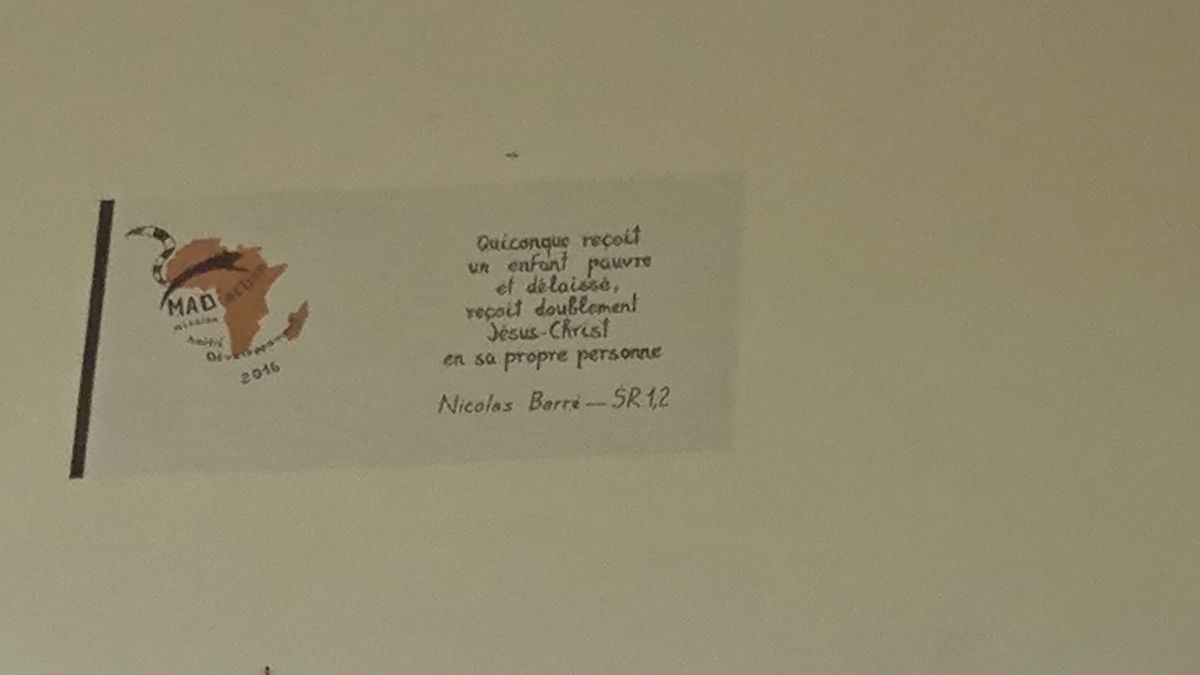 MAD action
mission
Amitié
Développement
2016
Quiconque reçoit
un enfant pauvre
et délaissé,
reçoit doublement
Jésus-Christ
en sa propre personne
Nicolas Barré — SR 1,2